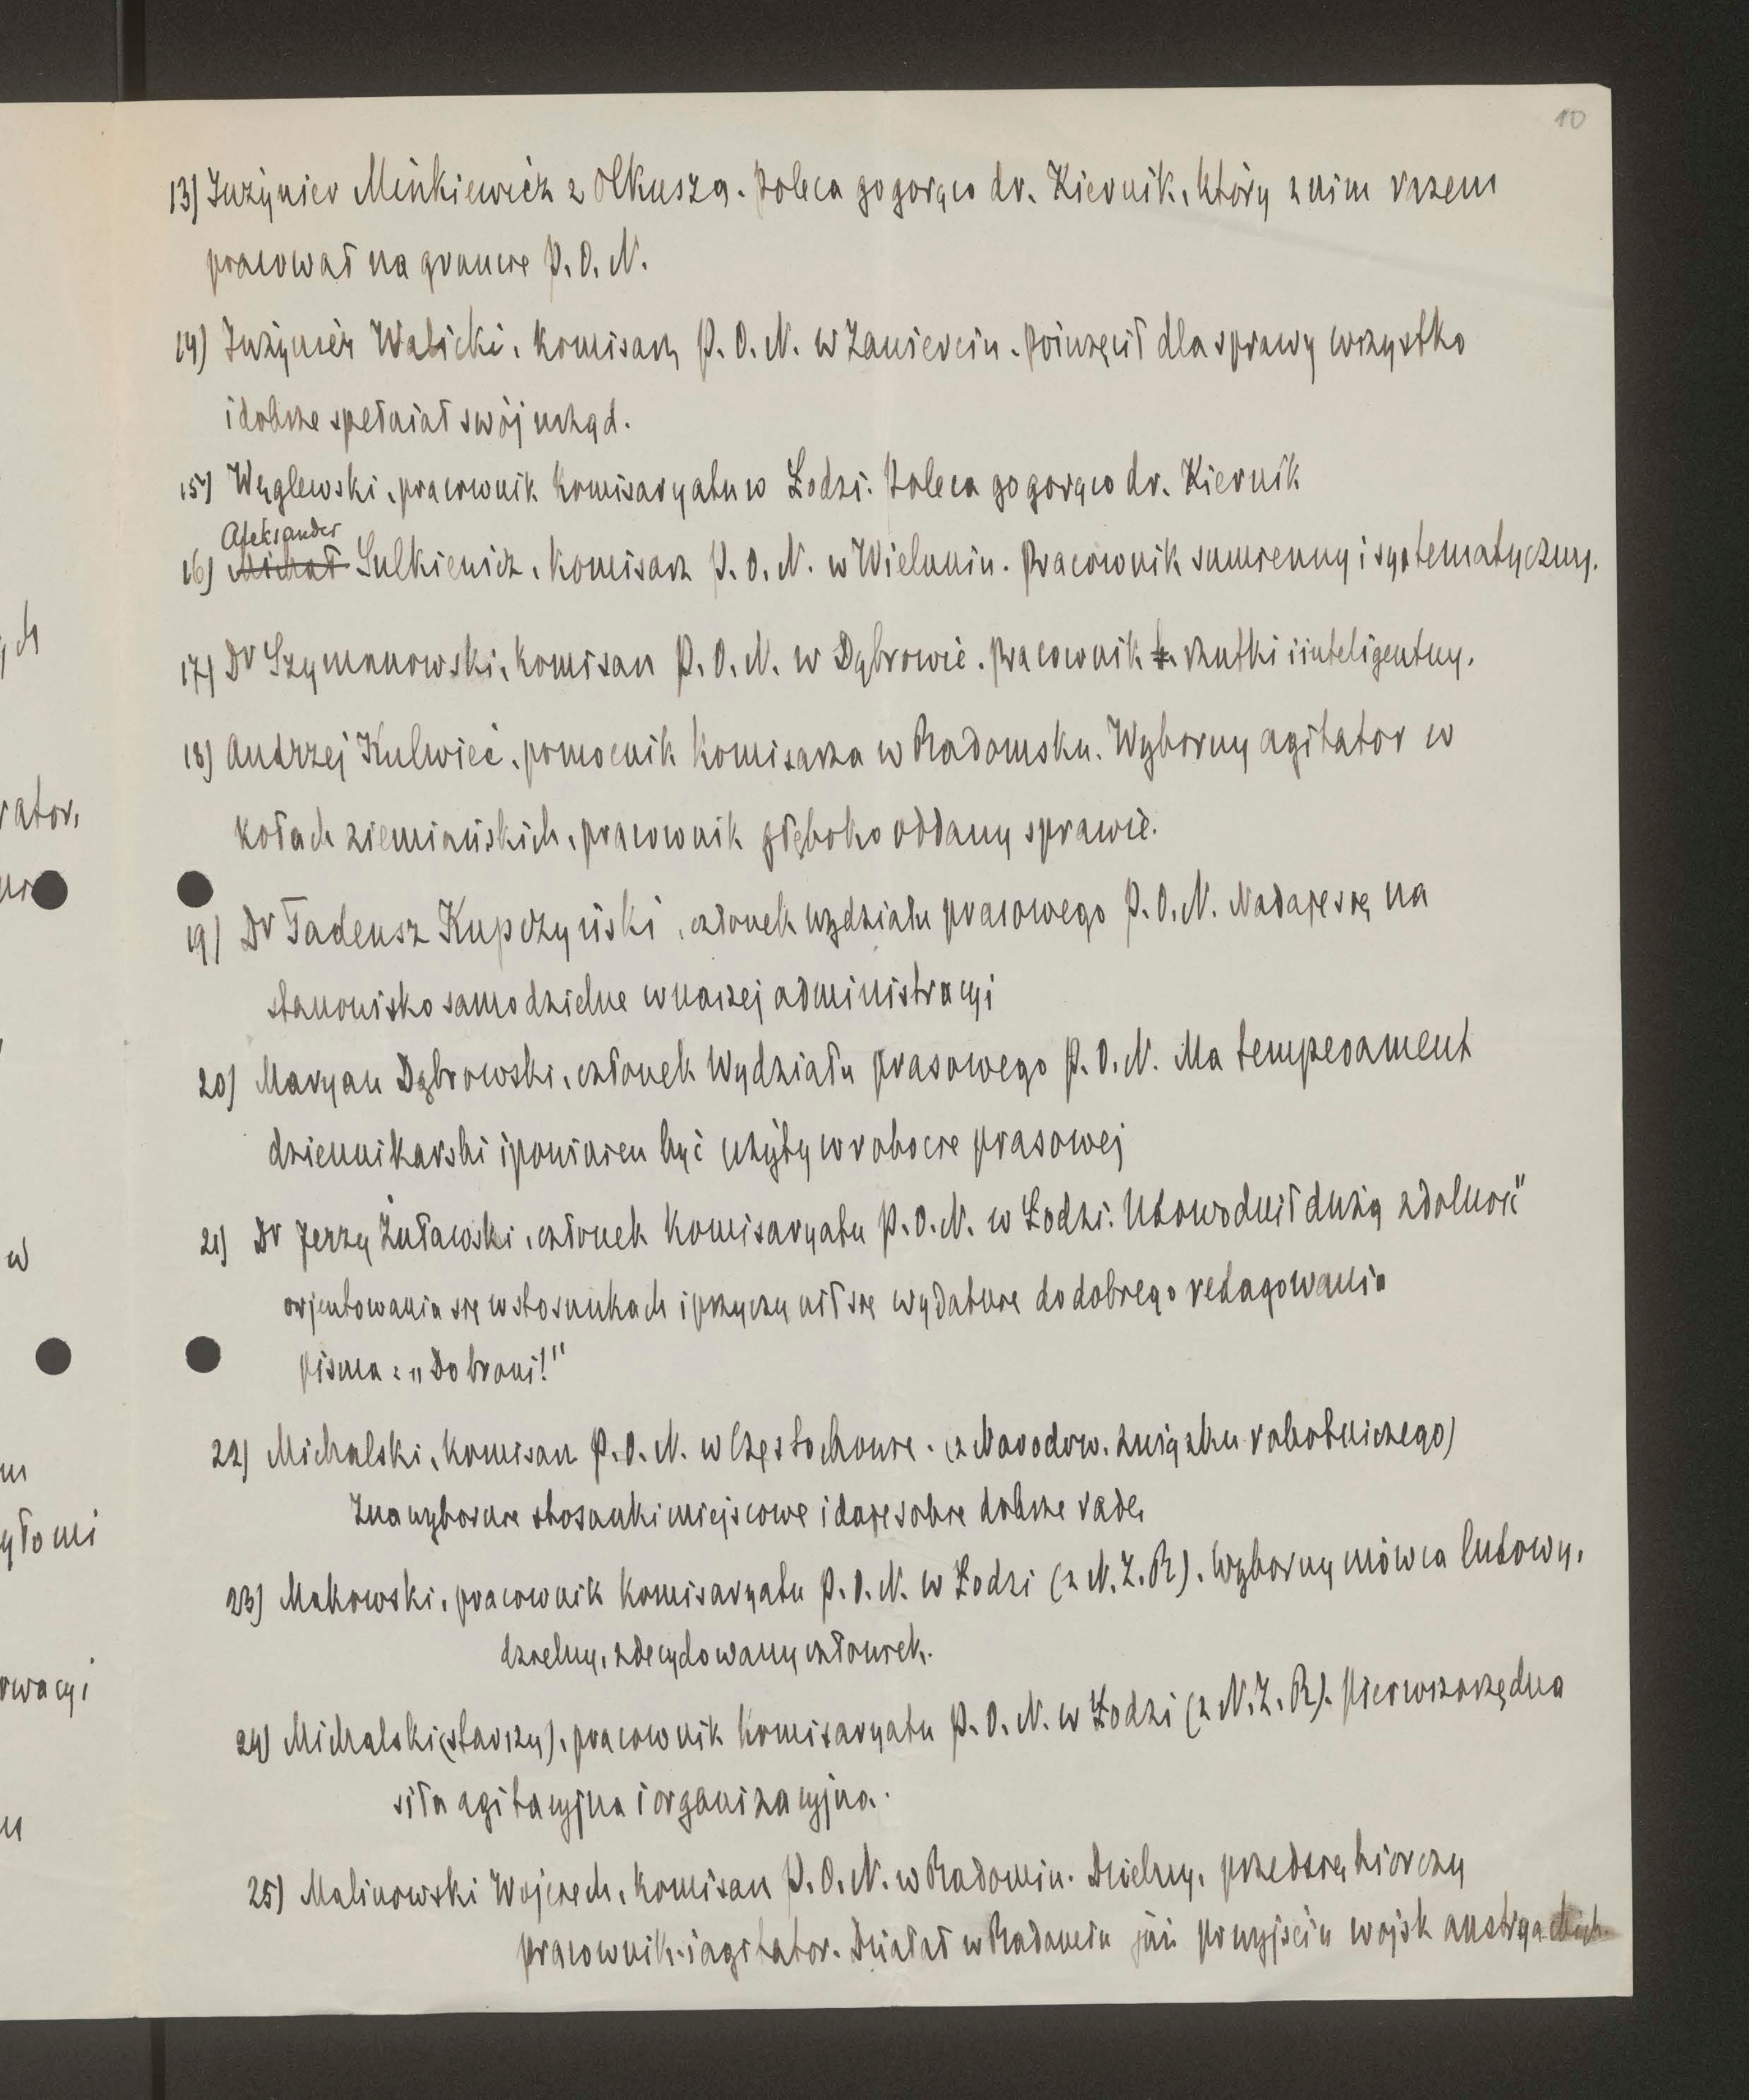 10
13) Inżynier Minkiewicz z Olkusza. Poleca go gorąco dr. Kiernik, który z nim razem
pracował na gruncie P. O. N.
14) Inżynier Walicki, komisarz P. O. N. w Zawierciu. Poświęcił dla sprawy wszystko
i dobrze spełniał swój urząd.
15) Węglewski, pracownik Komisaryatu w Łodzi. Poleca go gorąco dr. Kiernik
Aleksander
16) Michał Sulkiewicz, Komisarz P. O. N. w Wieluniu. Pracownik sumienny i systematyczny.
17) Dr Szymanowski, komisarz P. O. N. w Dąbrowie. Pracownik rzutki i inteligentny.
18) Andrzej Kulwieć, pomocnik Komisarza w Radomsku. Wyborny agitator w
kołach ziemiańskich, pracownik głęboko oddany sprawie.
19) Dr Tadeusz Kupczyński, członek wydziału prasowego P. O. N. Nadaje się na
stanowisko samodzielne w naszej administracyi
20) Maryan Dąbrowski, członek Wydziału prasowego P. O. N. Ma temperament
dziennikarski i powinien być użyty w robocie prasowej
21) Dr Jerzy Żuławski, członek Komisaryatu P. O. N. w Łodzi. Udowodnił dużą zdolność
orjentowania się w stosunkach i przyczynił się wydatnie do dobrego redagowania
pisma: „Do broni!"
22) Michalski, Komisarz P. O. N. w Częstochowie. (z Narodow. związku robotniczego)
Zna wybornie stosunki miejscowe i daje sobie dobrze radę.
23) Makowski, pracownik Komisaryatu P. O. N. w Łodzi (z N. Z. R). Wyborny mówca ludowy,
dzielny, zdecydowany człowiek.
24) Michalski (starszy), pracownik Komisaryatu P. O. N. w Łodzi (z N. Z. R). Pierwszorzędna
siła agitacyjna i organizacyjna.
25) Malinowski Wojciech, Komisarz P. O. N. w Radomiu. Dzielny, przedsiębiorczy
pracownik i agitator. Działał w Radomiu już po wyjściu wojsk austryackich